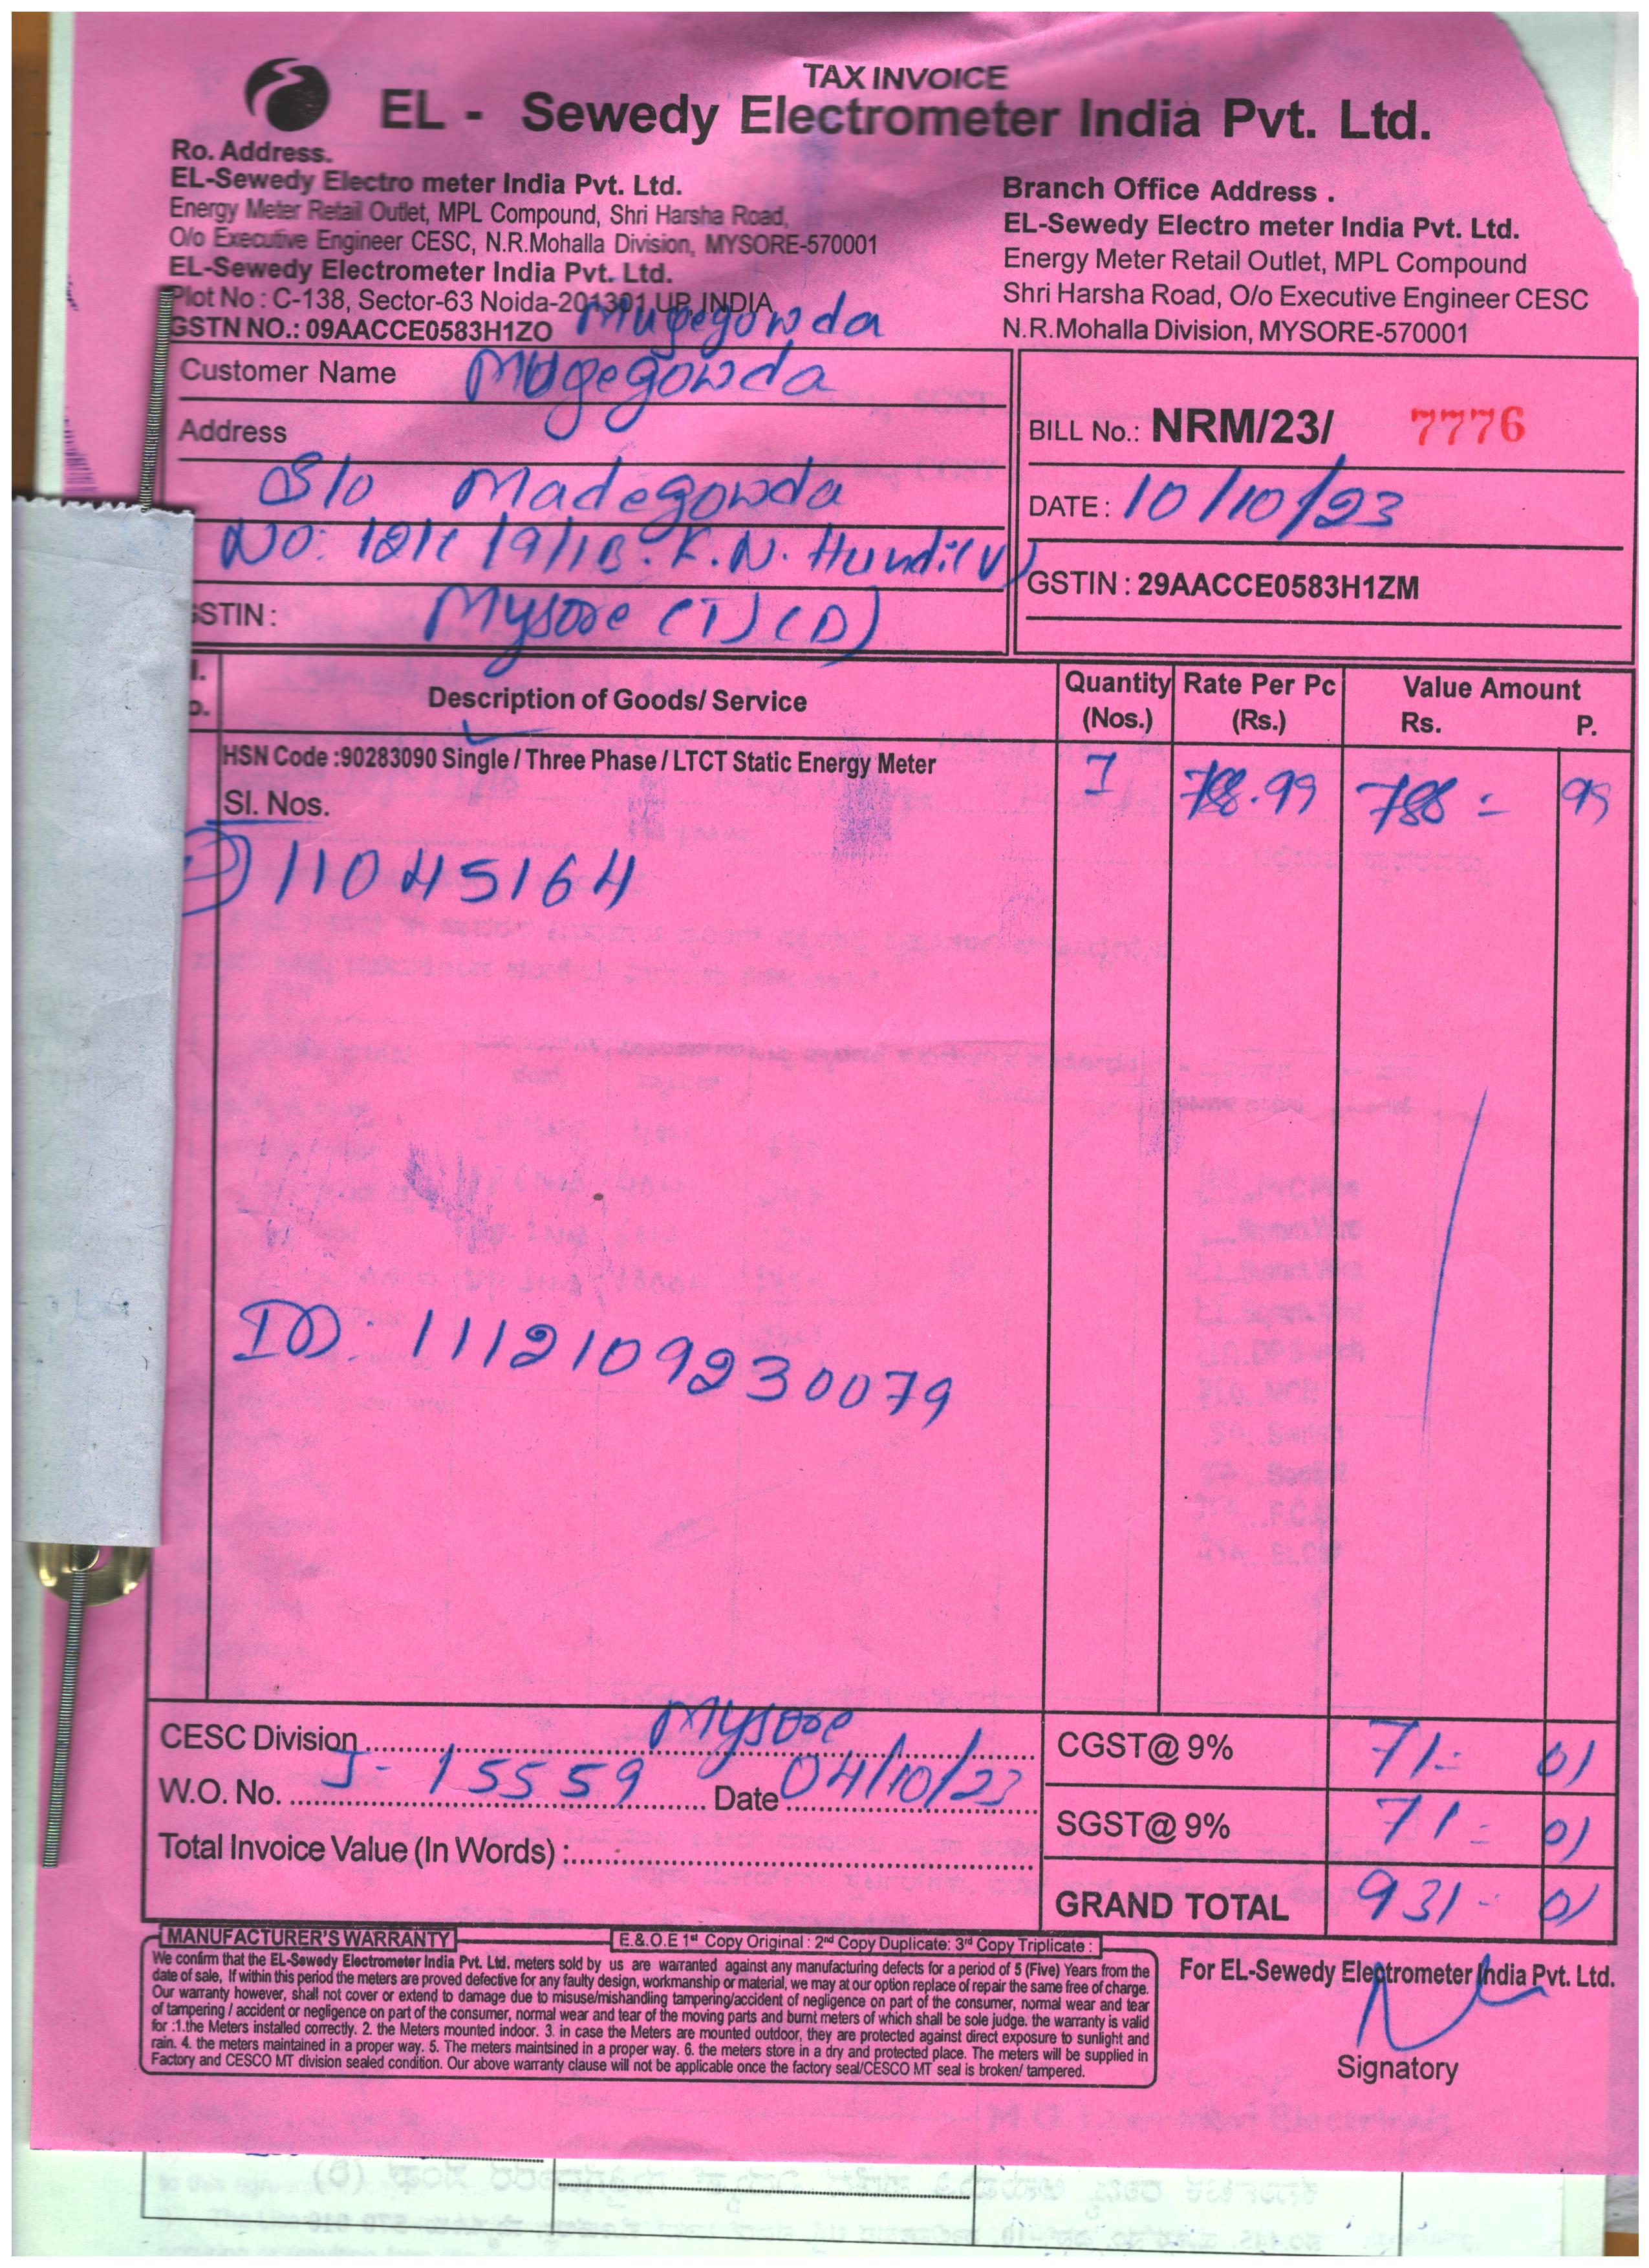 TAX INVOICE
EL - Sewedy Electrometer India Pvt. Ltd.
Ro. Address.
EL-Sewedy Electro meter India Pvt. Ltd.
Energy Meter Retail Outlet, MPL Compound, Shri Harsha Road,
O/o Executive Engineer CESC, N.R.Mohalla Division, MYSORE-570001
EL-Sewedy Electrometer India Pvt. Ltd.
Plot No : C-138, Sector-63 Noida-201301 UP, INDIA
GSTN NO.: 09AACCE0583H1ZO
Branch Office Address .
EL-Sewedy Electro meter India Pvt. Ltd.
Energy Meter Retail Outlet, MPL Compound
Shri Harsha Road, O/o Executive Engineer CESC
N.R.Mohalla Division, MYSORE-570001
Mugegowda
Customer Name Mugegowda
Address
S/o Madegowda
No: K.N. Hundi(V)
GSTIN : Mysore (T) (D)
BILL No.: NRM/23/ 7776
DATE : 10/10/23
GSTIN : 29AACCE0583H1ZM
Description of Goods/ Service Quantity (Nos.) Rate Per Pc (Rs.) Value Amount Rs. P.
HSN Code :90283090 Single / Three Phase / LTCT Static Energy Meter 1 788.99 788 = 99
Sl. Nos.
11045164
ID: 1112109230079
CESC Division Mysore
W.O. No. J- 15559 Date 04/10/23
Total Invoice Value (In Words) :
CGST@ 9% 71 = 01
SGST@ 9% 71 = 01
GRAND TOTAL 931 = 01
MANUFACTURER'S WARRANTY
E.&.O.E 1st Copy Original : 2nd Copy Duplicate: 3rd Copy Triplicate :
We confirm that the EL-Sewedy Electrometer India Pvt. Ltd. meters sold by us are warranted against any manufacturing defects for a period of 5 (Five) Years from the
date of sale, If within this period the meters are proved defective for any faulty design, workmanship or material, we may at our option replace of repair the same free of charge.
Our warranty however, shall not cover or extend to damage due to misuse/mishandling tampering/accident of negligence on part of the consumer, normal wear and tear
of tampering / accident or negligence on part of the consumer, normal wear and tear of the moving parts and burnt meters of which shall be sole judge. the warranty is valid
for :1.the Meters installed correctly. 2. the Meters mounted indoor. 3. in case the Meters are mounted outdoor, they are protected against direct exposure to sunlight and
rain. 4. the meters maintained in a proper way. 5. The meters maintsined in a proper way. 6. the meters store in a dry and protected place. The meters will be supplied in
Factory and CESCO MT division sealed condition. Our above warranty clause will not be applicable once the factory seal/CESCO MT seal is broken/ tampered.
For EL-Sewedy Electrometer India Pvt. Ltd.
Signatory